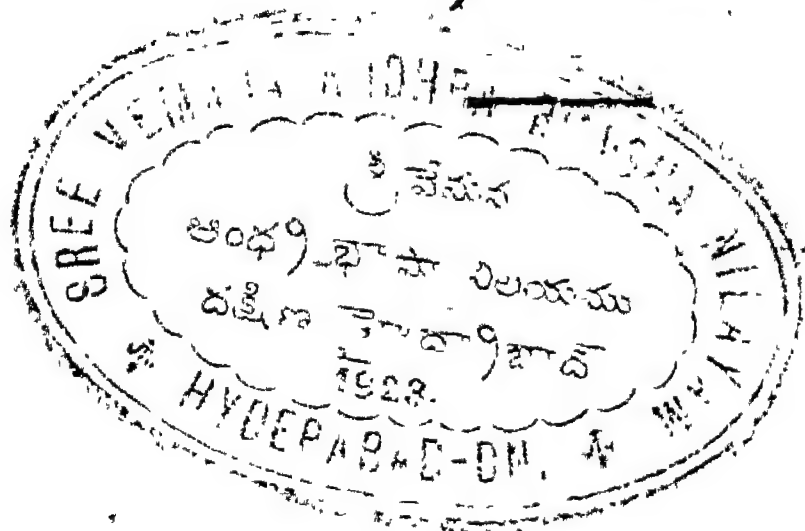 SREE VEMANA ANDHRA BHASHA NILAYAM
శ్రీ వేమన
ఆంధ్ర భాషా నిలయము
దక్షిణ హైద్రాబాద్
1923.
* HYDERABAD-DN. *